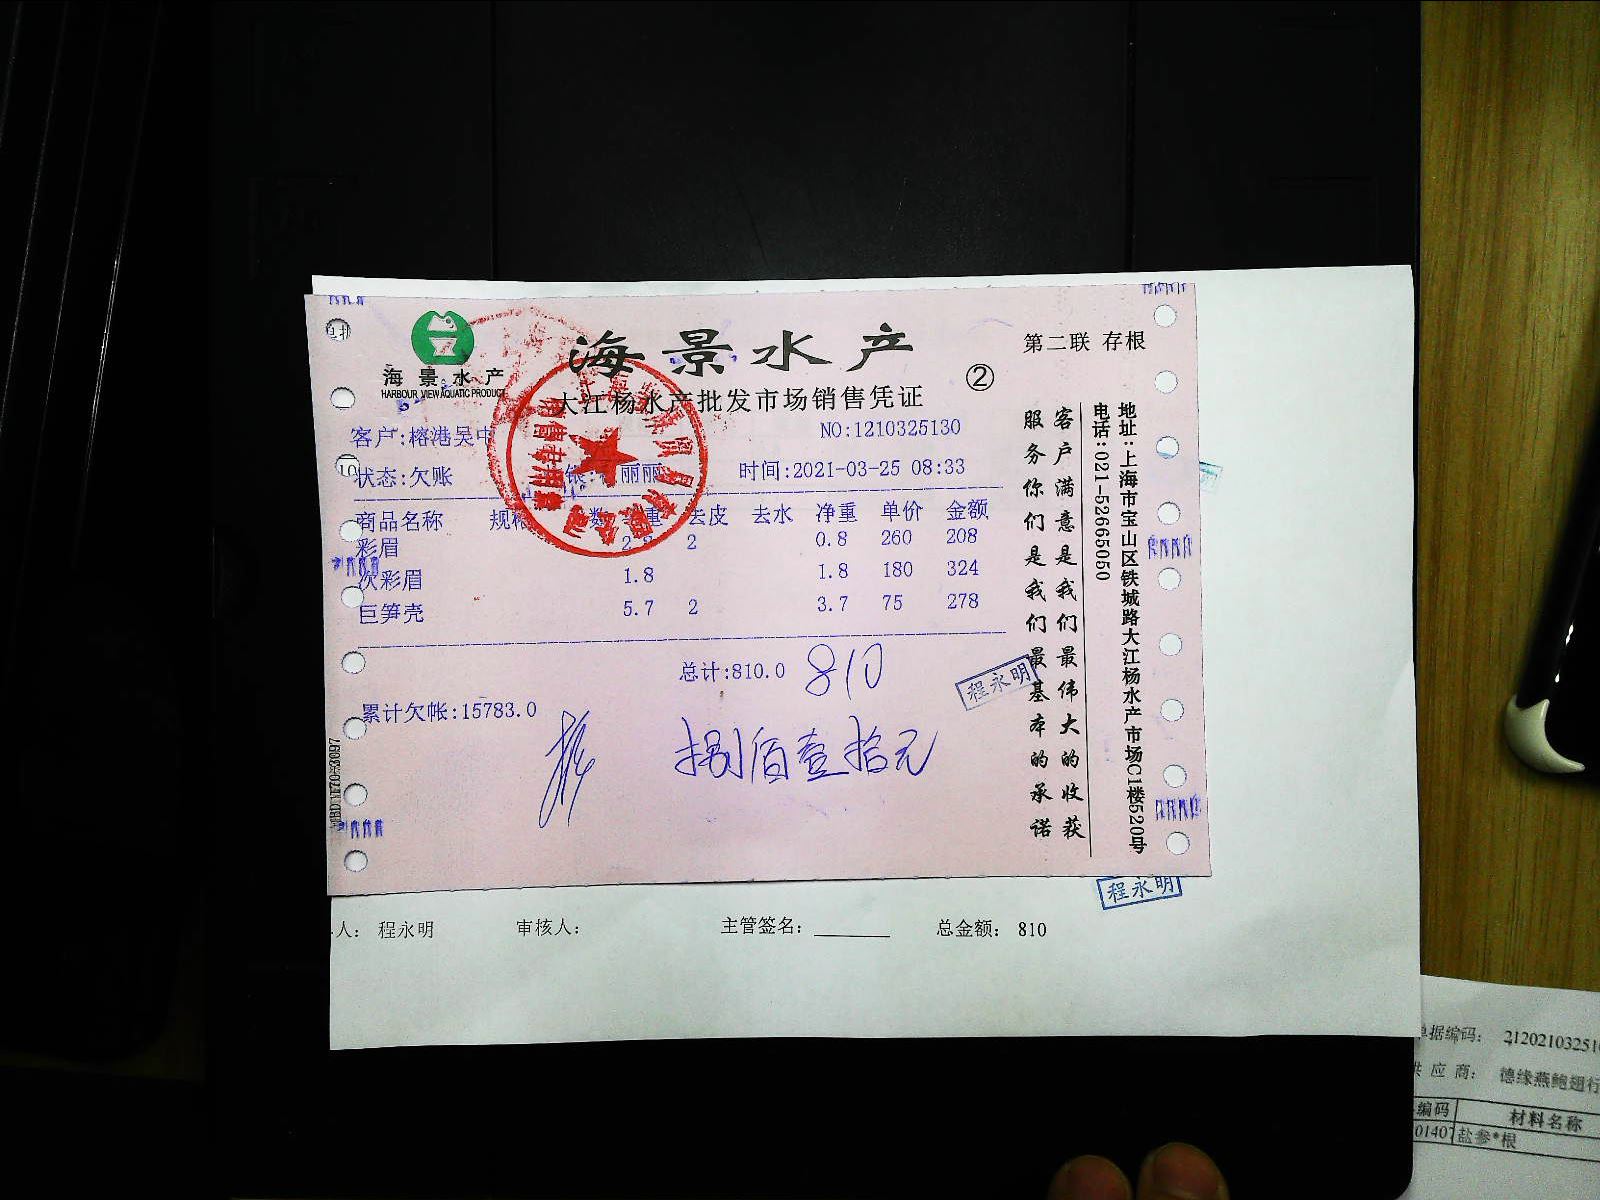 海景水产
HARBOUR VIEW AQUATIC PRODUCT
海景水产
大江杨水产批发市场销售凭证
第二联 存根
②
客户:榕港吴中
NO:1210325130
状态:欠账
丽丽
时间:2021-03-25 08:33
商品名称 规格 数 重 去皮 去水 净重 单价 金额
彩眉 2.8 2 0.8 260 208
次彩眉 1.8 1.8 180 324
巨笋壳 5.7 2 3.7 75 278
总计:810.0 810
累计欠帐:15783.0
捌佰壹拾元
程永明
客户满意是我们最伟大的收获
服务你们是我们最基本的承诺
地址:上海市宝山区铁城路大江杨水产市场C1楼520号
电话:021-52665050
程永明
人: 程永明 审核人: 主管签名: 总金额: 810
单据编码: 21202103251
供应商: 德缘燕鲍翅行
编码 材料名称
01407 盐参*根